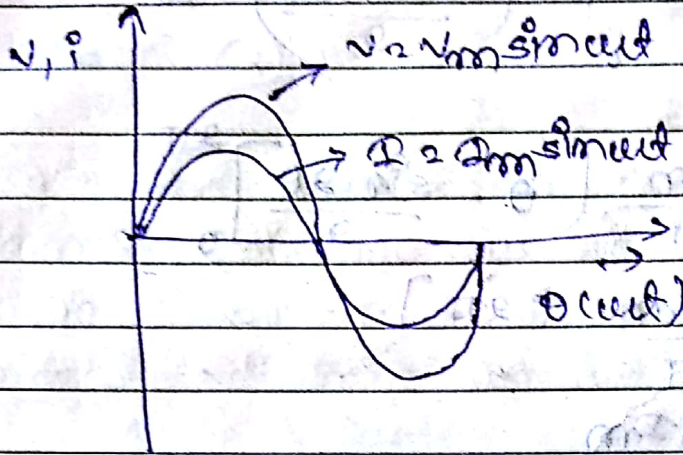 v, i
v = vm sin ωt
I = Im sin ωt
θ (ωt)